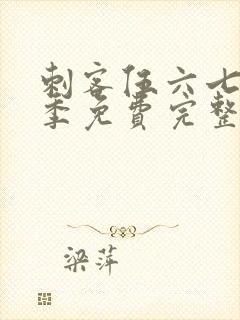 刺客伍六七
季免费完整
梁萍